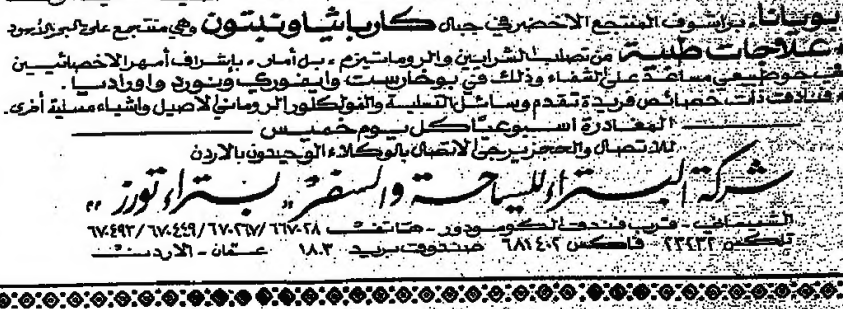 بويانا، براشوف المنتجع الاخضر في جبال كارباثيا ونبتون وهي منتجع على البحر الأسود
علاجات طبية من تصلب الشرايين والروماتيزم، بل أمان، بإشراف أمهر الاخصائيين
في جو طبيعي مساعد على الشفاء وذلك في بوخارست وايفوري ونورد واوراديا.
فنادق ذات خصائص فريدة تقدم وسائل التسلية والفولكلور الروماني الاصيل واشياء مسلية أخرى.
المغادرة اسبوعياً كل يوم خميس
للاتصال والحجز يرجى الاتصال بالوكلاء الوحيدون بالاردن
شركة البتراء للسياحة والسفر "بتراء تورز"
الشميساني - قرب فندق الكومودور - هاتف ٦٦٧٠٢٨ / ٦٧٠٢٦٧ / ٦٧٠٤٤٩ / ٦٧٠٤٩٢
تلكس ٢٣٤٣٢ فاكس ٦٨١٤٠٢ صندوق بريد ١٨٠٣ عمّان - الاردن